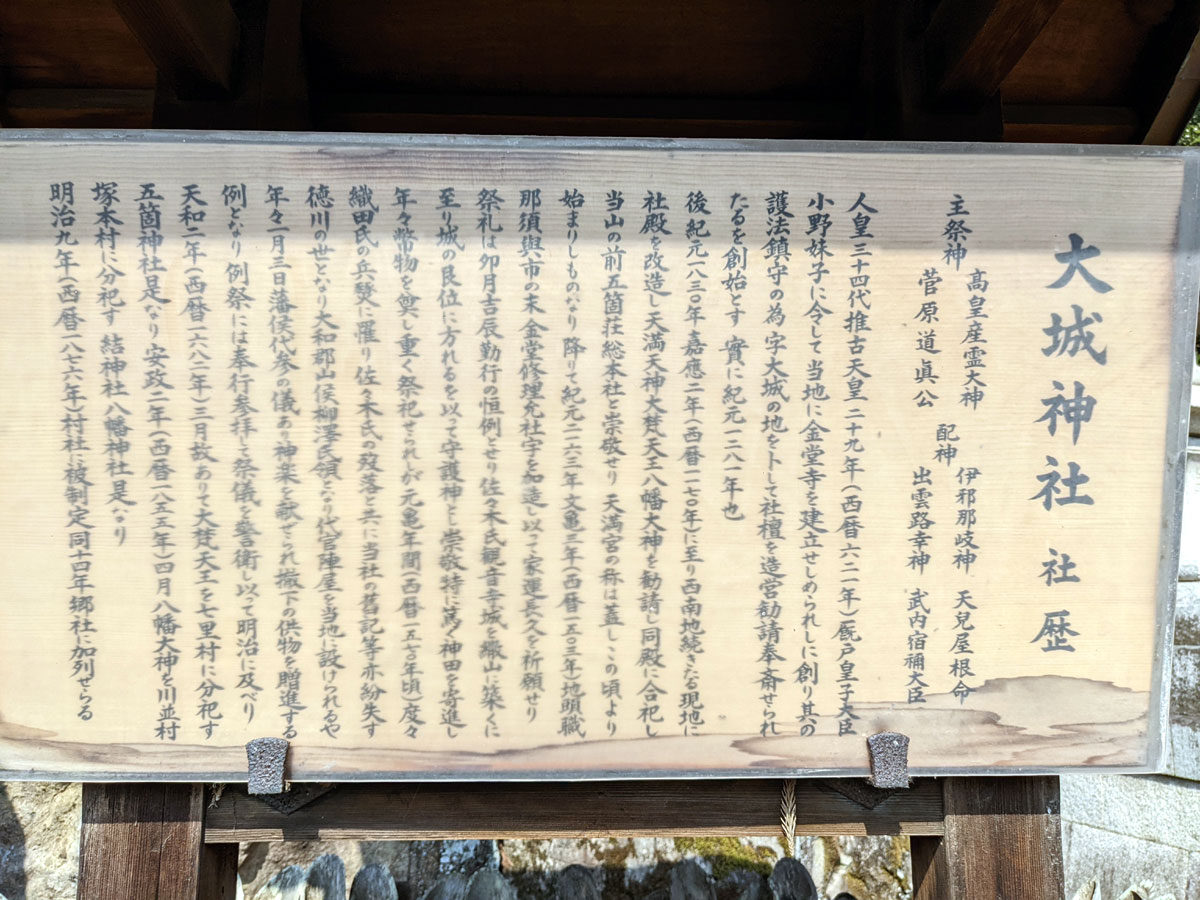 大城神社 社歴
主祭神 高皇産霊大神 配神 伊邪那岐神 天兒屋根命
菅原道眞公 出雲路幸神 武内宿禰大臣
人皇三十四代推古天皇二十九年(西暦六二一年)厩戸皇子大臣
小野妹子に令して当地に金堂寺を建立せしめられしに創り其の
護法鎮守の為字大城の地を卜して社檀を造営勧請奉斎せられ
たるを創始とす 實に紀元一二八一年也
後紀元一八三〇年嘉應二年(西暦一一七〇年)に至り西南地続きなる現地に
社殿を改造し天満天神大梵天王八幡大神を勧請し同殿に合祀し
当山の前五箇荘総本社と崇敬せり 天満宮の称は蓋しこの頃より
始まりしものなり 降りて紀元二一六三年文亀三年(西暦一五〇三年)地頭職
那須與市の末金堂修理充社宇を加造し以って家運長久を祈願せり
祭礼は卯月吉辰勤行の恒例とせり佐々木氏観音寺城を繖山に築くに
至り城の艮位に方れるを以って守護神とし崇敬特に篤く神田を寄進し
年々幣物を奠し重く祭祀せられしが元亀年間(西暦一五七〇年頃)度々
織田氏の兵燹に罹り佐々木氏の没落と共に当社の舊記等亦紛失す
徳川の世となり大和郡山侯柳澤氏領となり代官陣屋を当地に設けられるや
年々二月三日藩侯代参の儀あり神楽を献ぜられ撤下の供物を贈進する
例となり例祭には奉行参拝して祭儀を警衛し以て明治に及べり
天和二年(西暦一六八二年)三月故ありて大梵天王を七里村に分祀す
五箇神社是なり安政二年(西暦一八五五年)四月八幡大神を川並村
塚本村に分祀す 結神社八幡神社是なり
明治九年(西暦一八七六年)村社に被制定同十四年郷社に加列せらる